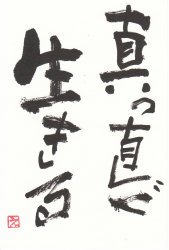 真っ直ぐ
生きる